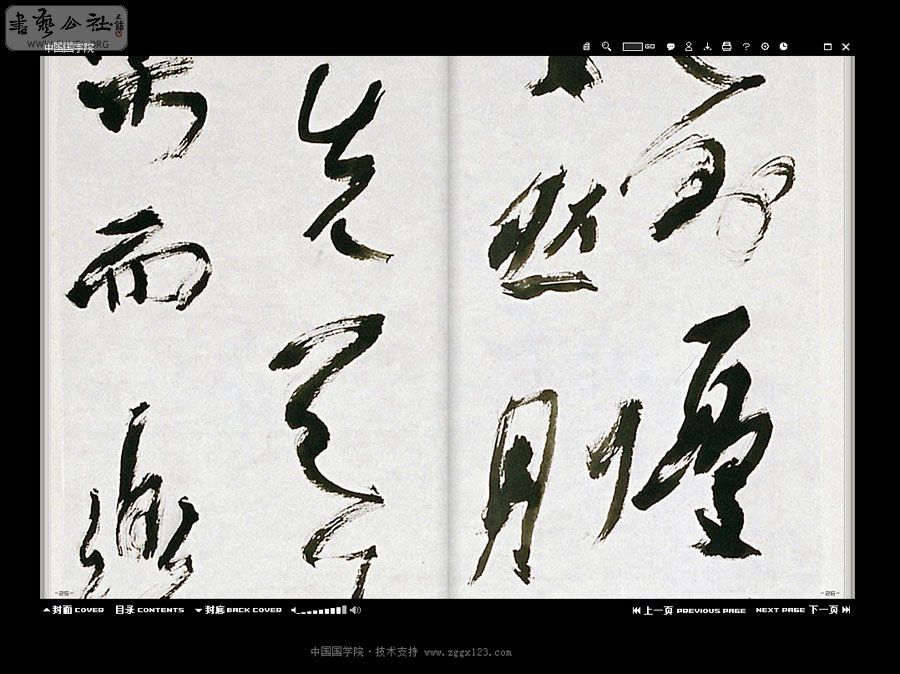 书艺公社
WWW.SHUYI.ORG
中国国学院
GO
憂
然則
先天下
而樂
-25-
-26-
封面 COVER 目录 CONTENTS 封底 BACK COVER
上一页 PREVIOUS PAGE NEXT PAGE 下一页
中国国学院·技术支持 www.zggx123.com